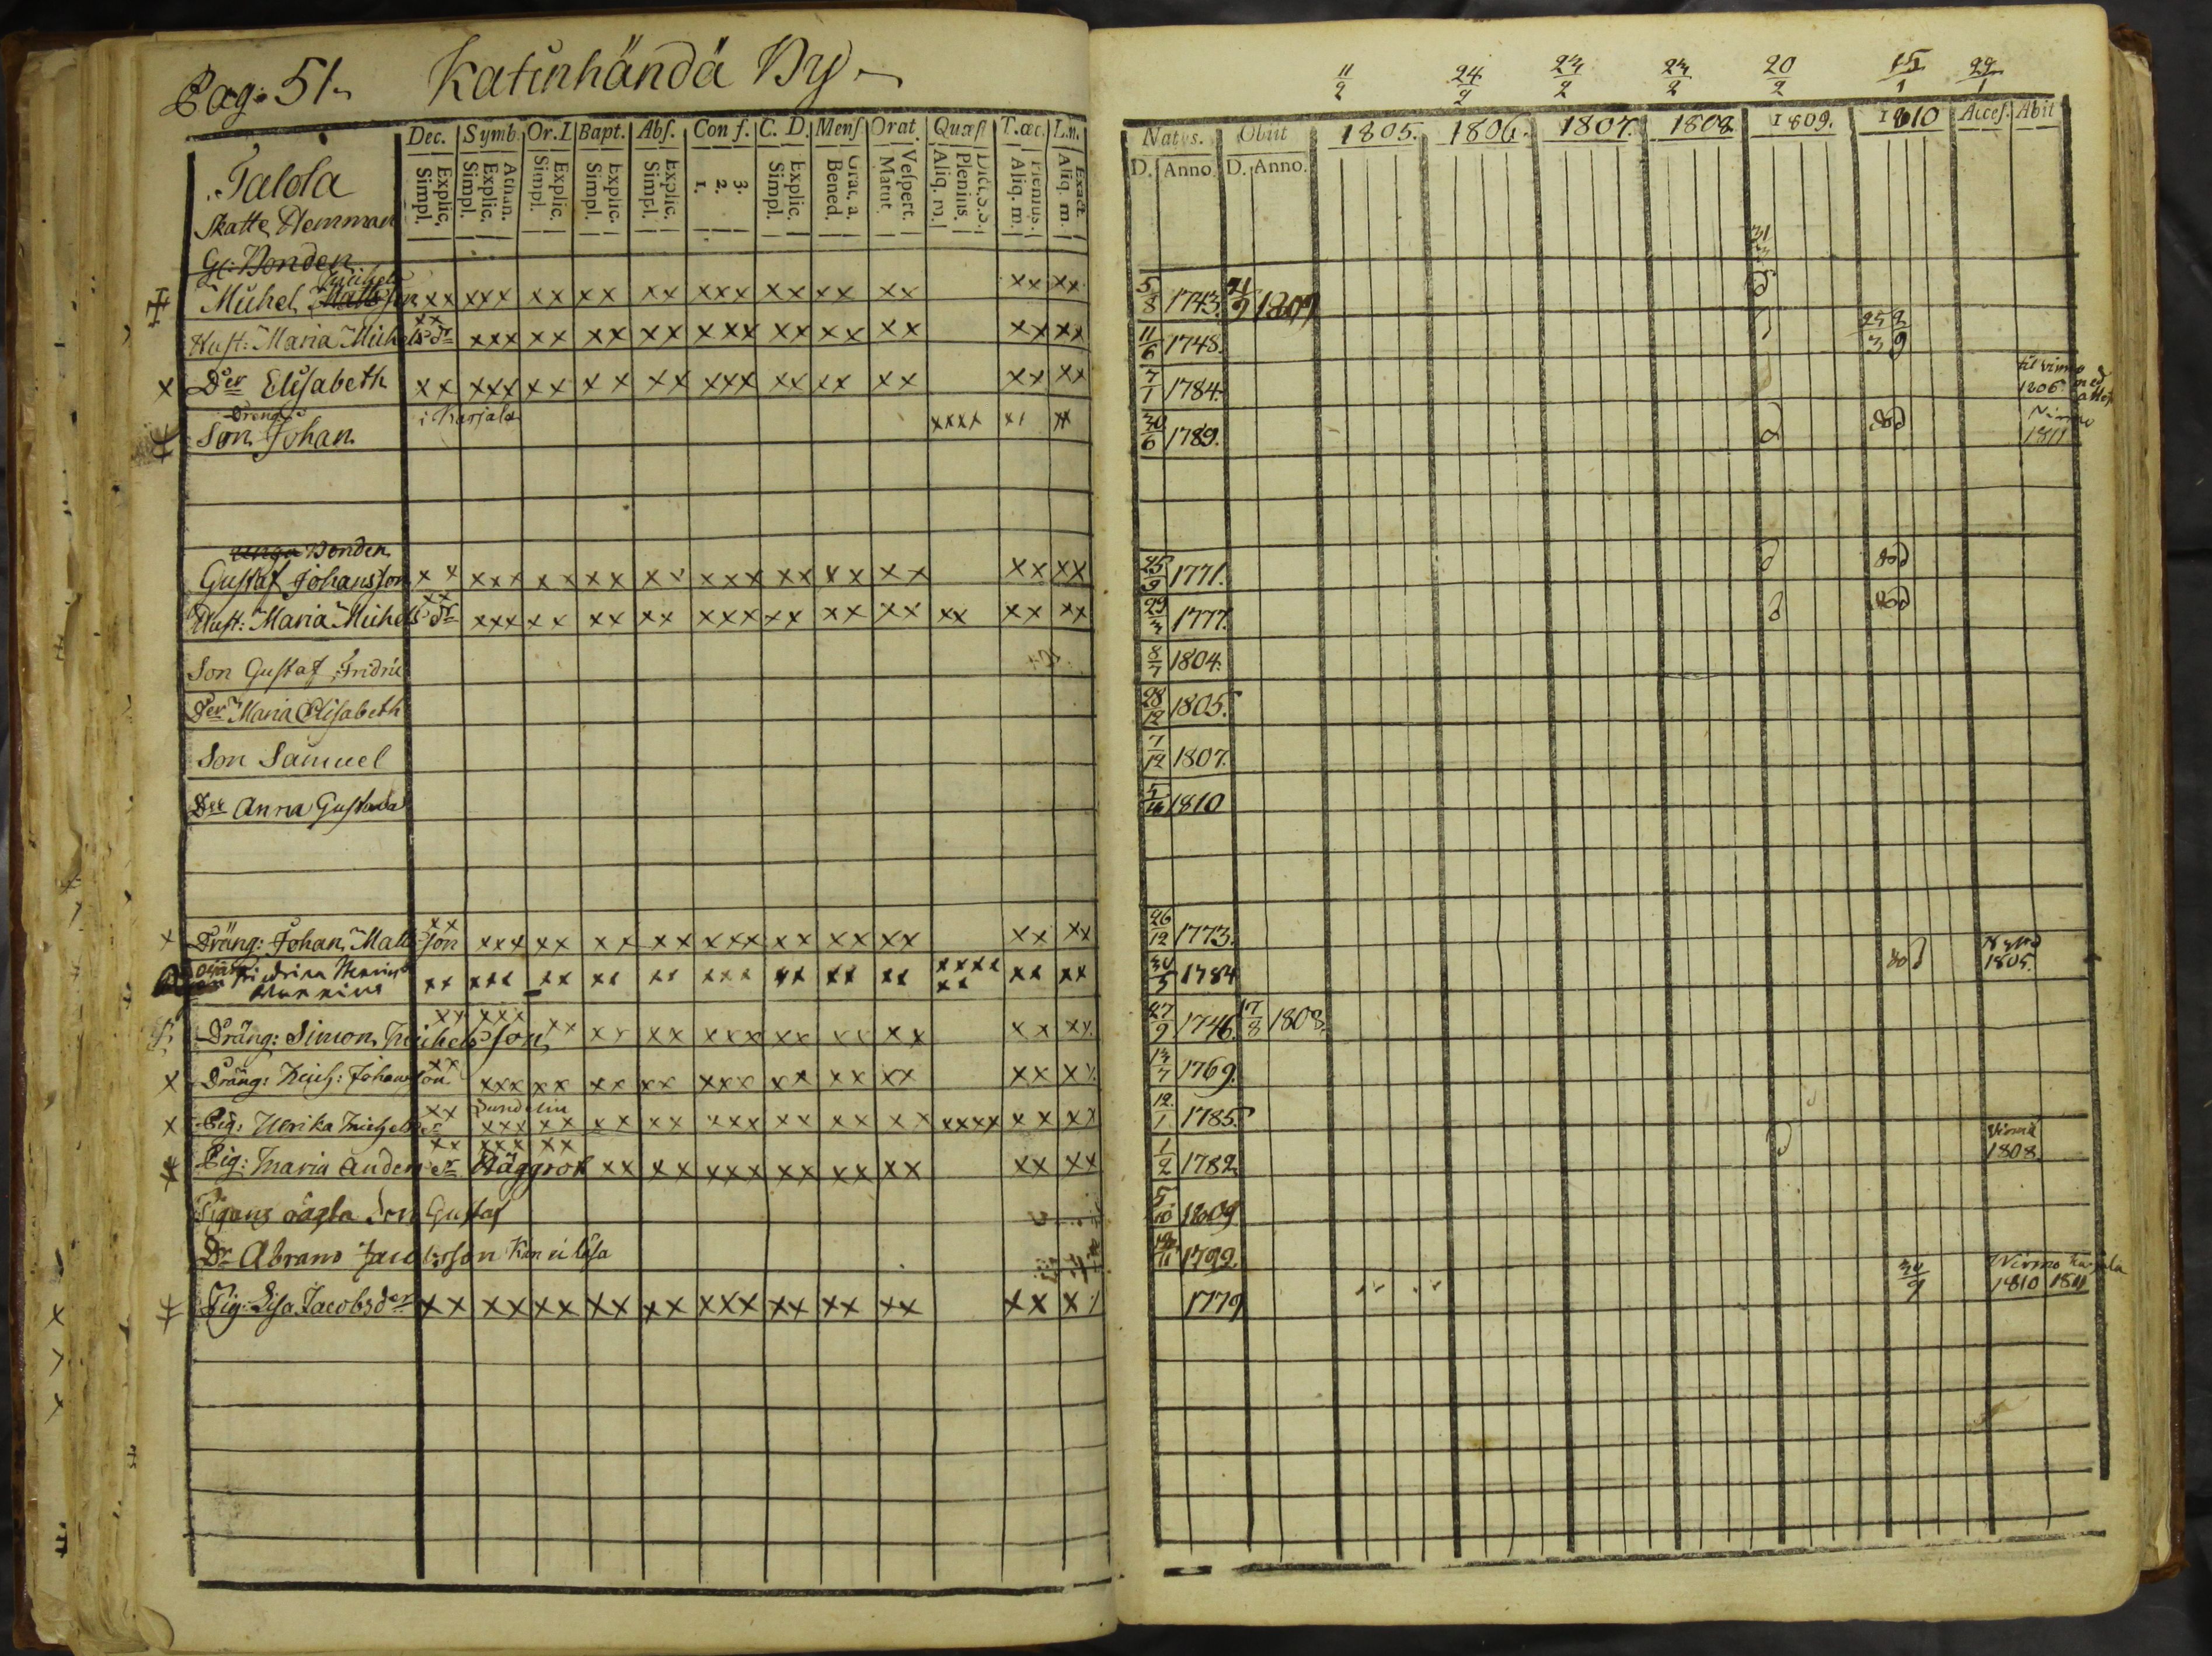 Pag: 51. Katinhändä By
Dec. Symb. Or. I. Bapt. Abſ. Conf. C. D. Menſ Orat. Quæſt T. œc. L.n.
Explic. Simpl. Athan. Explic. Simpl. Explic. Simpl. Explic. Simpl. Explic. Simpl. 3. 2. 1. Explic. Simpl. Grac. a. Bened. Veſpert. Matut. Dict. S. S. Plenius. Aliq. m. Plenius. Aliq. m. Exact. Aliq. m.
Talola
Skatte Hemman
Gl: Bonden
Michel Michels Matts son xx xxx xx xx xx xxx xx xx xx xx xx
Hust: Maria Michelsdr xx xxx xx xx xx xxx xx xx xx xx xx
Der Elisabeth xx xxx xx xx xx xxx xx xx xx xx xx
Dreng
Son Johan i Karjala xxxx xx xx
Unga Bonden
Gustaf Johansson xx xxx xx xx xx xxx xx xx xx xx xx
Hust: Maria Michelsdr xx xxx xx xx xx xxx xx xx xx xx xx xx
Son Gustaf Fridric
Der Maria Elisabeth
Son Samuel
Der Anna Gustava
Dräng: Johan Mattsson xx xxx xx xx xx xxx xx xx xx xx xx
xx xxx xx xx xx xxx xx xx xx xxxx xx xx xx
Dräng: Simon Michelsson xx xxx xx xx xx xxx xx xx xx xx xx
Dräng: Mich: Johansson xx xxx xx xx xx xxx xx xx xx xx xx
Pig: Ulrika Michelsdr Sundelin xx xxx xx xx xx xxx xx xx xx xxxx xx xx
Pig: Maria Andersdr Häggrot xx xxx xx xx xx xxx xx xx xx xx xx
Pigans oägta Son Gustaf
Dr Abram Jacobsson Kan ei läsa
Pig: Lisa Jacobsder xx xx xx xx xx xxx xx xx xx xx xx
11/2 24/2 23/2 23/2 20/2 15/1 29/1
Natus. Obiit 1805. 1806. 1807. 1808. 1809. 1810 Acceſ. Abiit
D. Anno. D. Anno.
5/8 1743. 1809
11/6 1748.
7/1 1784. til Virmo 1806
30/6 1789. Virmo 1811
25/9 1771.
29/3 1777.
8/7 1804.
28/12 1805.
7/12 1807.
1810
26/12 1773.
1784 1805.
27/9 1746. 17/8 1808.
13/7 1769.
12/1 1785.
1/2 1782. Virmo 1808.
5/10 1809
1792. Virmo 1810 1811
1779